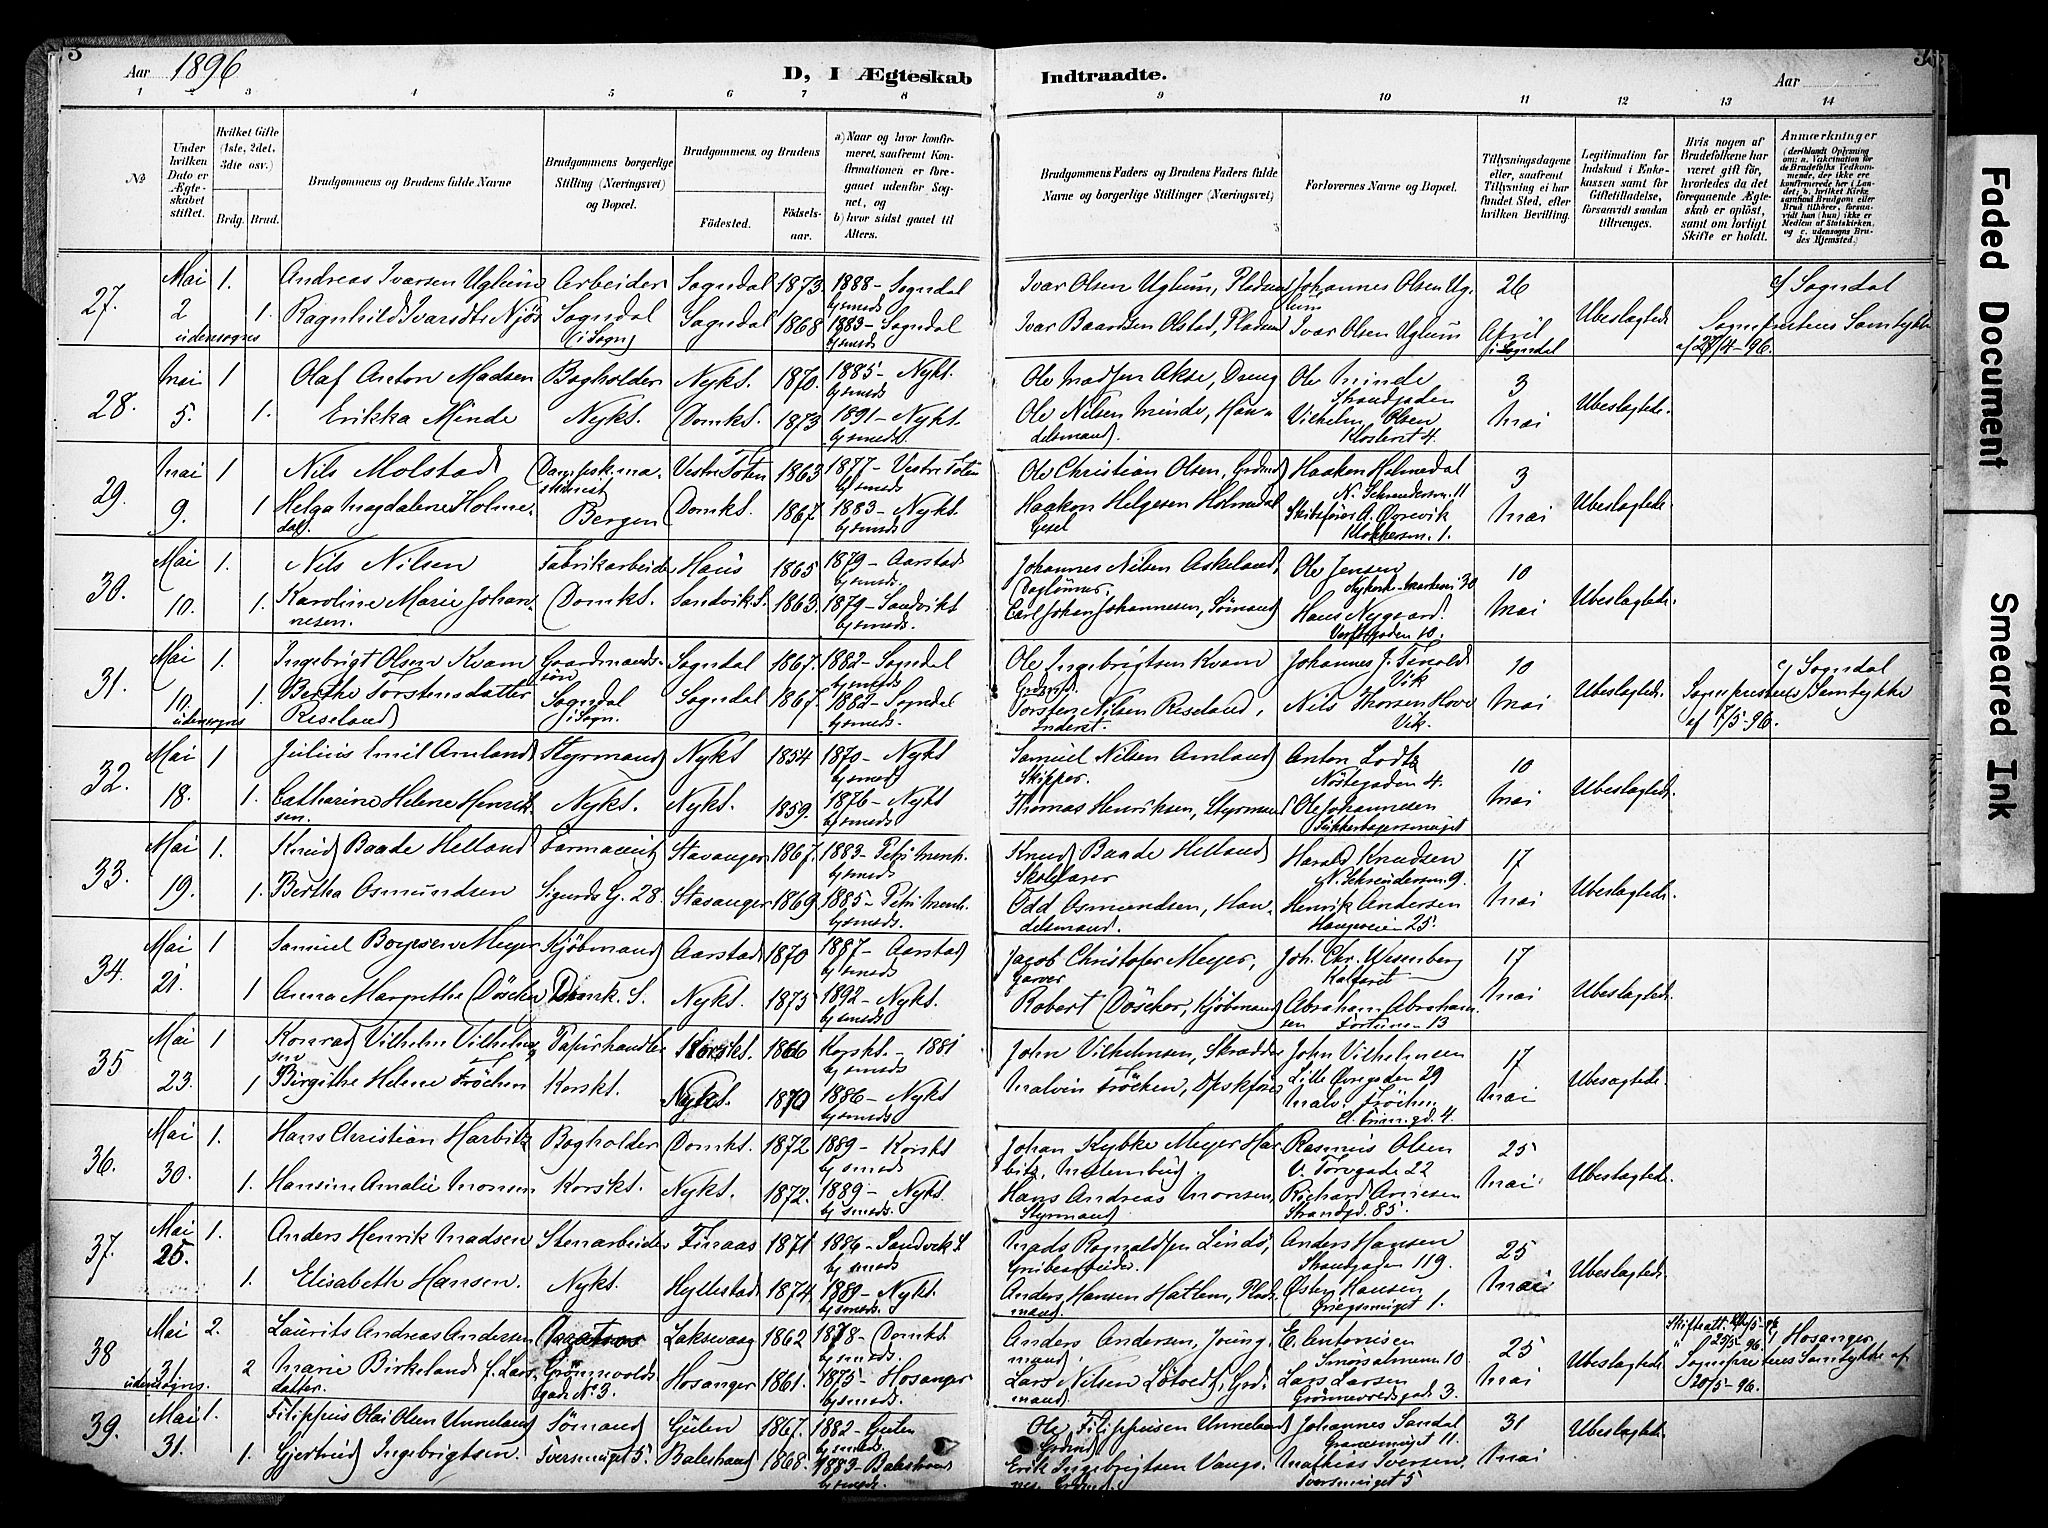 3
Aar 1896
D, I Ægteskab
Indtraadte.
Aar
3
1 2 3 4 5 6 7 8
9 10 11 12 13 14
№
Under hvilken Dato er Ægteskabet stiftet.
Hvilket Gifte (1ste, 2det, 3die osv.)
Brdg. Brud.
Brudgommens og Brudens fulde Navne
Brudgommens borgerlige Stilling (Næringsvei) og Bopæl.
Brudgommens og Brudens
Födested.
Födselsaar.
a) Naar og hvor konfirmeret, saafremt Konfirmationen er foregaaet udenfor Sognet, og
b) hvor sidst gaaet til Alters.
Brudgommens Faders og Brudens Faders fulde Navne og borgerlige Stillinger (Næringsvei)
Forlovernes Navne og Bopæl.
Tillysningsdagene eller, saafremt Tillysning ei har fundet Sted, efter hvilken Bevilling.
Legitimation for Indskud i Enkekassen samt for Giftetilladelse, forsaavidt saadan tiltrænges.
Hvis nogen af Brudefolkene har været gift för, hvorledes da det foregaaende Ægteskab er oplöst, samt om lovligt Skifte er holdt.
Anmærkninger
(deriblandt Oplysning om: a. Vakcination for de Brudefolks Vedkommende, der ikke ere konfirmerede her i Landet; b. hvilket Kirkesamfund Brudgom eller Brud tilhörer, forsaavidt han (hun) ikke er Medlem af Statskirken, og c. udensogns Brudes Hjemsted.)
27. Mai 1. Andreas Ivarsen Uglum Arbeider Sogndal 1873 1888 - Sogndal
2 1. Ragnhild Ivarsdtr Njös Sogndal Sogndal 1868 1883 - Sogndal
udensogns (i Sogn)
Ivar Olsen Uglum, Pladsm Johannes Olsen Uglum 26 c/ Sogndal
Ivar Baardsen Olstad, Pladsm Ivar Olsen Uglum April i Sogndal Ubeslagtede Sognepræstens Samtykke af 27/4-96.
28. Mai 1 Olaf Anton Madsen Bogholder Nykt. 1870. 1885 - Nykt.
5. 1. Erikka Minde Nykt. Domkt. 1873 1891 - Nykt.
Ole Madsen Akse, Dreng Ole Minde Strandgaden 3
Ole Nilsen Minde, Handelsmand. Vilhelm Olsen Klosteret 4. Mai Ubeslagtede.
29. Mai 1 Nils Molstad Dampsk.maskinist Vestre Toten 1863 1877 - Vestre Toten
9. 1 Helga Magdalene Holmedal Bergen Domkt. 1867. 1883 - Nykt.
Ole Christian Olsen, Grdmd Haaken Holmedal N. Schreudersm. 11 3
Haakon Helgesen Holmedal Skibsfører A. Øvrevik Klokkersm. 1. Mai Ubeslagtede.
30. Mai 1. Nils Nilsen Fabrikarbeider Haus 1865 1879 - Aarstad
10. 1. Karoline Marie Johannesen. Domkt. Sandvikt. 1863. 1879 - Sandvikt
Johannes Nilsen Askeland, Daglönner. Ole Jensen 10
Carl Johan Johannesen, Sömand Hans Nygaard. Verftsgaden 10. Mai Ubeslagtede.
31. Mai 1. Ingebrigt Olsen Kvam Gaardmandssön Sogndal 1867. 1882 - Sogndal
10. 1. Berthe Torstensdatter Reseland Sogndal i Sogn. Sogndal 1867. 1882 - Sogndal
udensogns
Ole Ingebrigtsen Kvam Johannes J. Tenold Vik 10 c/ Sogndal
Torsten Nilsen Reseland, Inderst. Nils Thorsen Hove Vik. Mai Ubeslagtede. Sognepræstens Samtykke af 7/5-96.
32. Mai 1 Julius Emil Amland Styrmand Nykt 1854 1870 - Nykt
18. 1. Catharine Helene Henriksen. Nykt. Nykt. 1859. 1876 - Nykt
Samuel Nilsen Amland Skipper. Anton Lodtz Nöstegaden 4. 10
Thomas Henriksen, Styrmand Ole Johannesen Mai Ubeslagtede.
33. Mai 1. Knud Baade Helland Farmaceut Stavanger 1867. 1883 - Petri Menh.
19. 1. Bertha Osmundsen Sigurds G. 28. Stavanger 1869 1885 - Petri Menh.
Knud Baade Helland Skolelærer Harald Knudsen N. Schreudersm 9. 17
Odd Osmundsen, Handelsmand. Henrik Andersen Haugeveien 25. Mai Ubeslagtede.
34. Mai 1 Samuel Boyesen Meyer Kjöbmand Aarstad 1870 1887 - Aarstad
21. 1 Anna Margrethe Döscher Domk. S. Nykt. 1875 1892 - Nykt.
Jacob Christofer Meyer, Garver Joh. Chr. Wesenberg Kalfaret 17
Robert Döscher, Kjöbmand Abraham Abrahamsen Fortunen 13 Mai Ubeslagtede.
35 Mai 1 Konrad Vilhelm Vilhelmsen Papirhandler Korskt. 1866 Korskt. - 1881
23. 1 Birgithe Helene Fröchen Korskt. Nykt. 1870 1886 - Nykt
John Vilhelmsen, Skrædder John Vilhelmsen Lille Øvregaden 29 17
Malvin Fröchen, Dpskförer Malv. Fröchen Mai Ubesagtede.
36. Mai 1. Hans Christian Harbitz Bogholder Domkt. 1872 1889 - Korskt
30. 1. Hansine Amalie Monsen Korskt. Nykt. 1872. 1889 - Nykt.
Johan Kybke Meyer Harbitz, Rasmus Olsen V. Torvgade 22 25
Hans Andreas Monsen, Styrmand Richard Arnesen Strandgd. 85. Mai Ubeslagtede.
37. Mai 1. Anders Henrik Madsen Stenarbeider Finaas 1871 1886 - Sandvik S.
25. 1. Elisabeth Hansen. Nykt. Hyllestad 1874. 1889 - Nykt.
Mads Rognaldsen Lindö, Grubearbeider. Anders Hansen Strandgaden 119. 25
Anders Hansen Hatlem, Pladsmand. Østen Hansen Griegsmuget 1. Mai Ubeslagtede
38 Mai 2. Laurits Andreas Andersen Laksevaag 1862 1878 - Domkt.
31. 2 Marie Birkeland f. Larsdatter. Grönnevoldsgad. No 3. Hosanger 1861. 1875 - Hosanger
udensogns.
Anders Andersen, E. Antonisen Smörsalmenn. 10 25 Hosanger,
Lars Nilsen Lötvedt, Grdmand. Lars Larsen Grönnevoldsgad. 3. Mai Ubeslagtede Sognepræstens Samtykke af 20/5-96.
39. Mai 1. Filippus Olai Olsen Unneland Sömand Gulen 1867. 1882 - Gulen
31. 1. Gjertrud Ingebrigtsen. Tversmuget 5. Balestrand 1868. 1883 - Balestrand
Ole Filippusen Unneland Grdmd Johannes Sandal Granesmuget 11. 31
Erik Ingebrigtsen Mathias Iversen. Tversmuget 5 Mai Ubeslagtede.
Faded Document
Smeared Ink